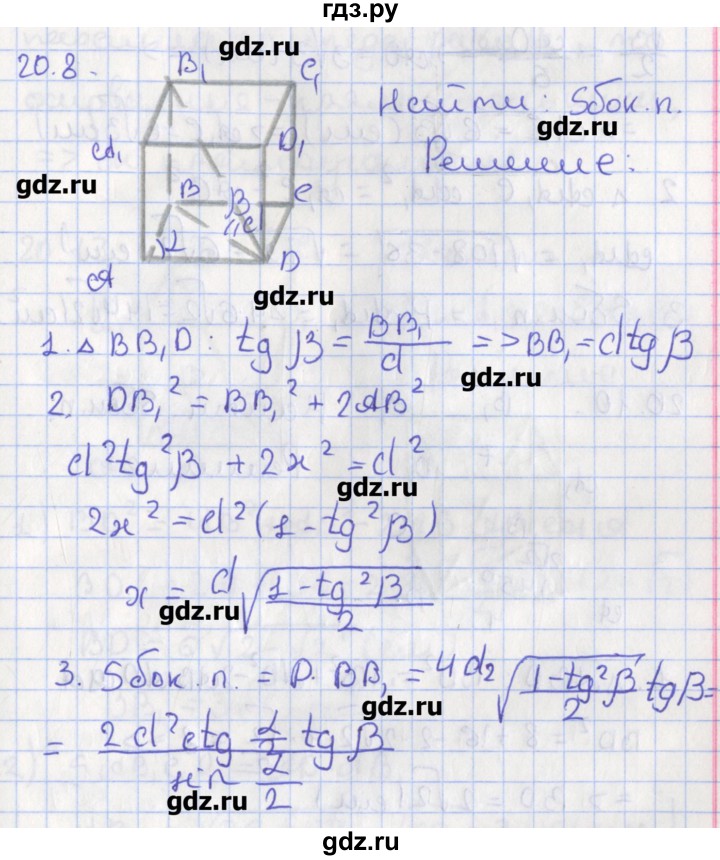 гдз.ру
20.8.
B₁
C₁
A₁
D₁
B
β
C
d
α
A
D
gdz.ru
gdz.ru
Найти: Sбок.п.
gdz.ru
Решение:
gdz.ru
1. △ BB₁D: tg β = BB₁/d => BB₁ = d tg β
gdz.ru
2. DB₁² = BB₁² + 2AB²
d² tg² β + 2x² = d²
gdz.ru
2x² = d² (1 - tg² β)
x = d √((1 - tg² β)/2)
gdz.ru
3. Sбок.п. = P · BB₁ = 4d₂ √((1 - tg² β)/2) tg β =
gdz.ru
= (2d² ctg α/2 tg β)/(sin α/2)
gdz.ru
гдз.ру